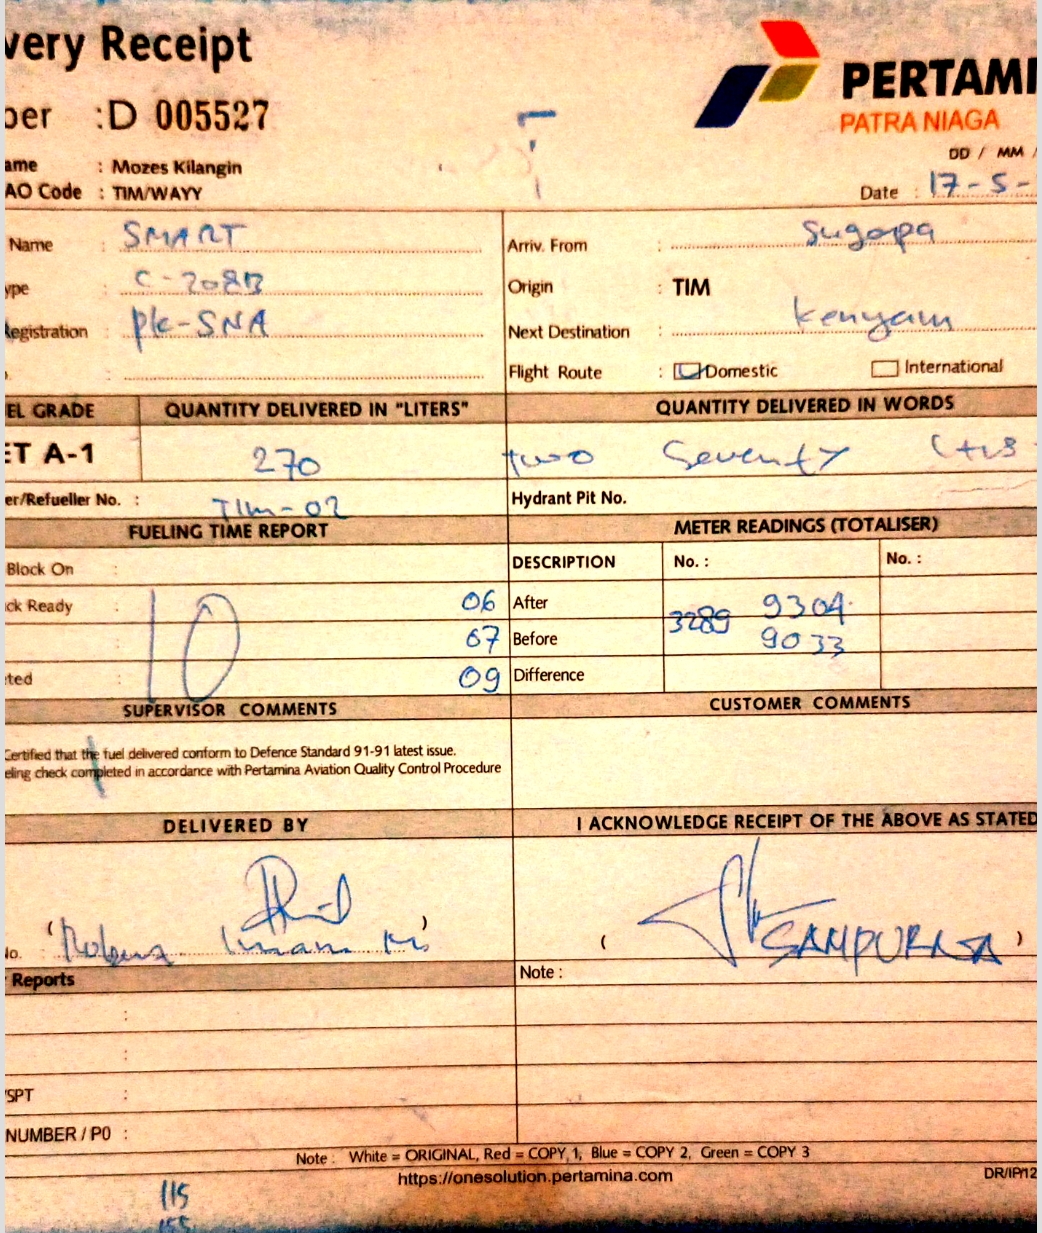 very Receipt
PERTAMI
PATRA NIAGA
ber : D 005527
DD / MM /
ame : Mozes Kilangin
AO Code : TIM/WAYY
Date : 17-5-
Name : SMART
Arriv. From : Sugapa
ype : C-208B
Origin : TIM
Registration : PK-SNA
Next Destination : Kenyam
Flight Route : Domestic International
EL GRADE QUANTITY DELIVERED IN "LITERS" QUANTITY DELIVERED IN WORDS
ET A-1 270 two Seventy Ltrs
er/Refueller No. : TIM-02 Hydrant Pit No.
FUELING TIME REPORT METER READINGS (TOTALISER)
Block On : DESCRIPTION No. : No. :
ck Ready : 10 06 After 3289 9304
: 07 Before 9033
ted : 09 Difference
SUPERVISOR COMMENTS CUSTOMER COMMENTS
Certified that the fuel delivered conform to Defence Standard 91-91 latest issue.
eling check completed in accordance with Pertamina Aviation Quality Control Procedure
DELIVERED BY I ACKNOWLEDGE RECEIPT OF THE ABOVE AS STATED
( ) ( SAMPURNA )
No. :
Reports Note :
:
:
/SPT :
NUMBER / PO :
Note : White = ORIGINAL, Red = COPY 1, Blue = COPY 2, Green = COPY 3
https://onesolution.pertamina.com DR/IP12
115
155